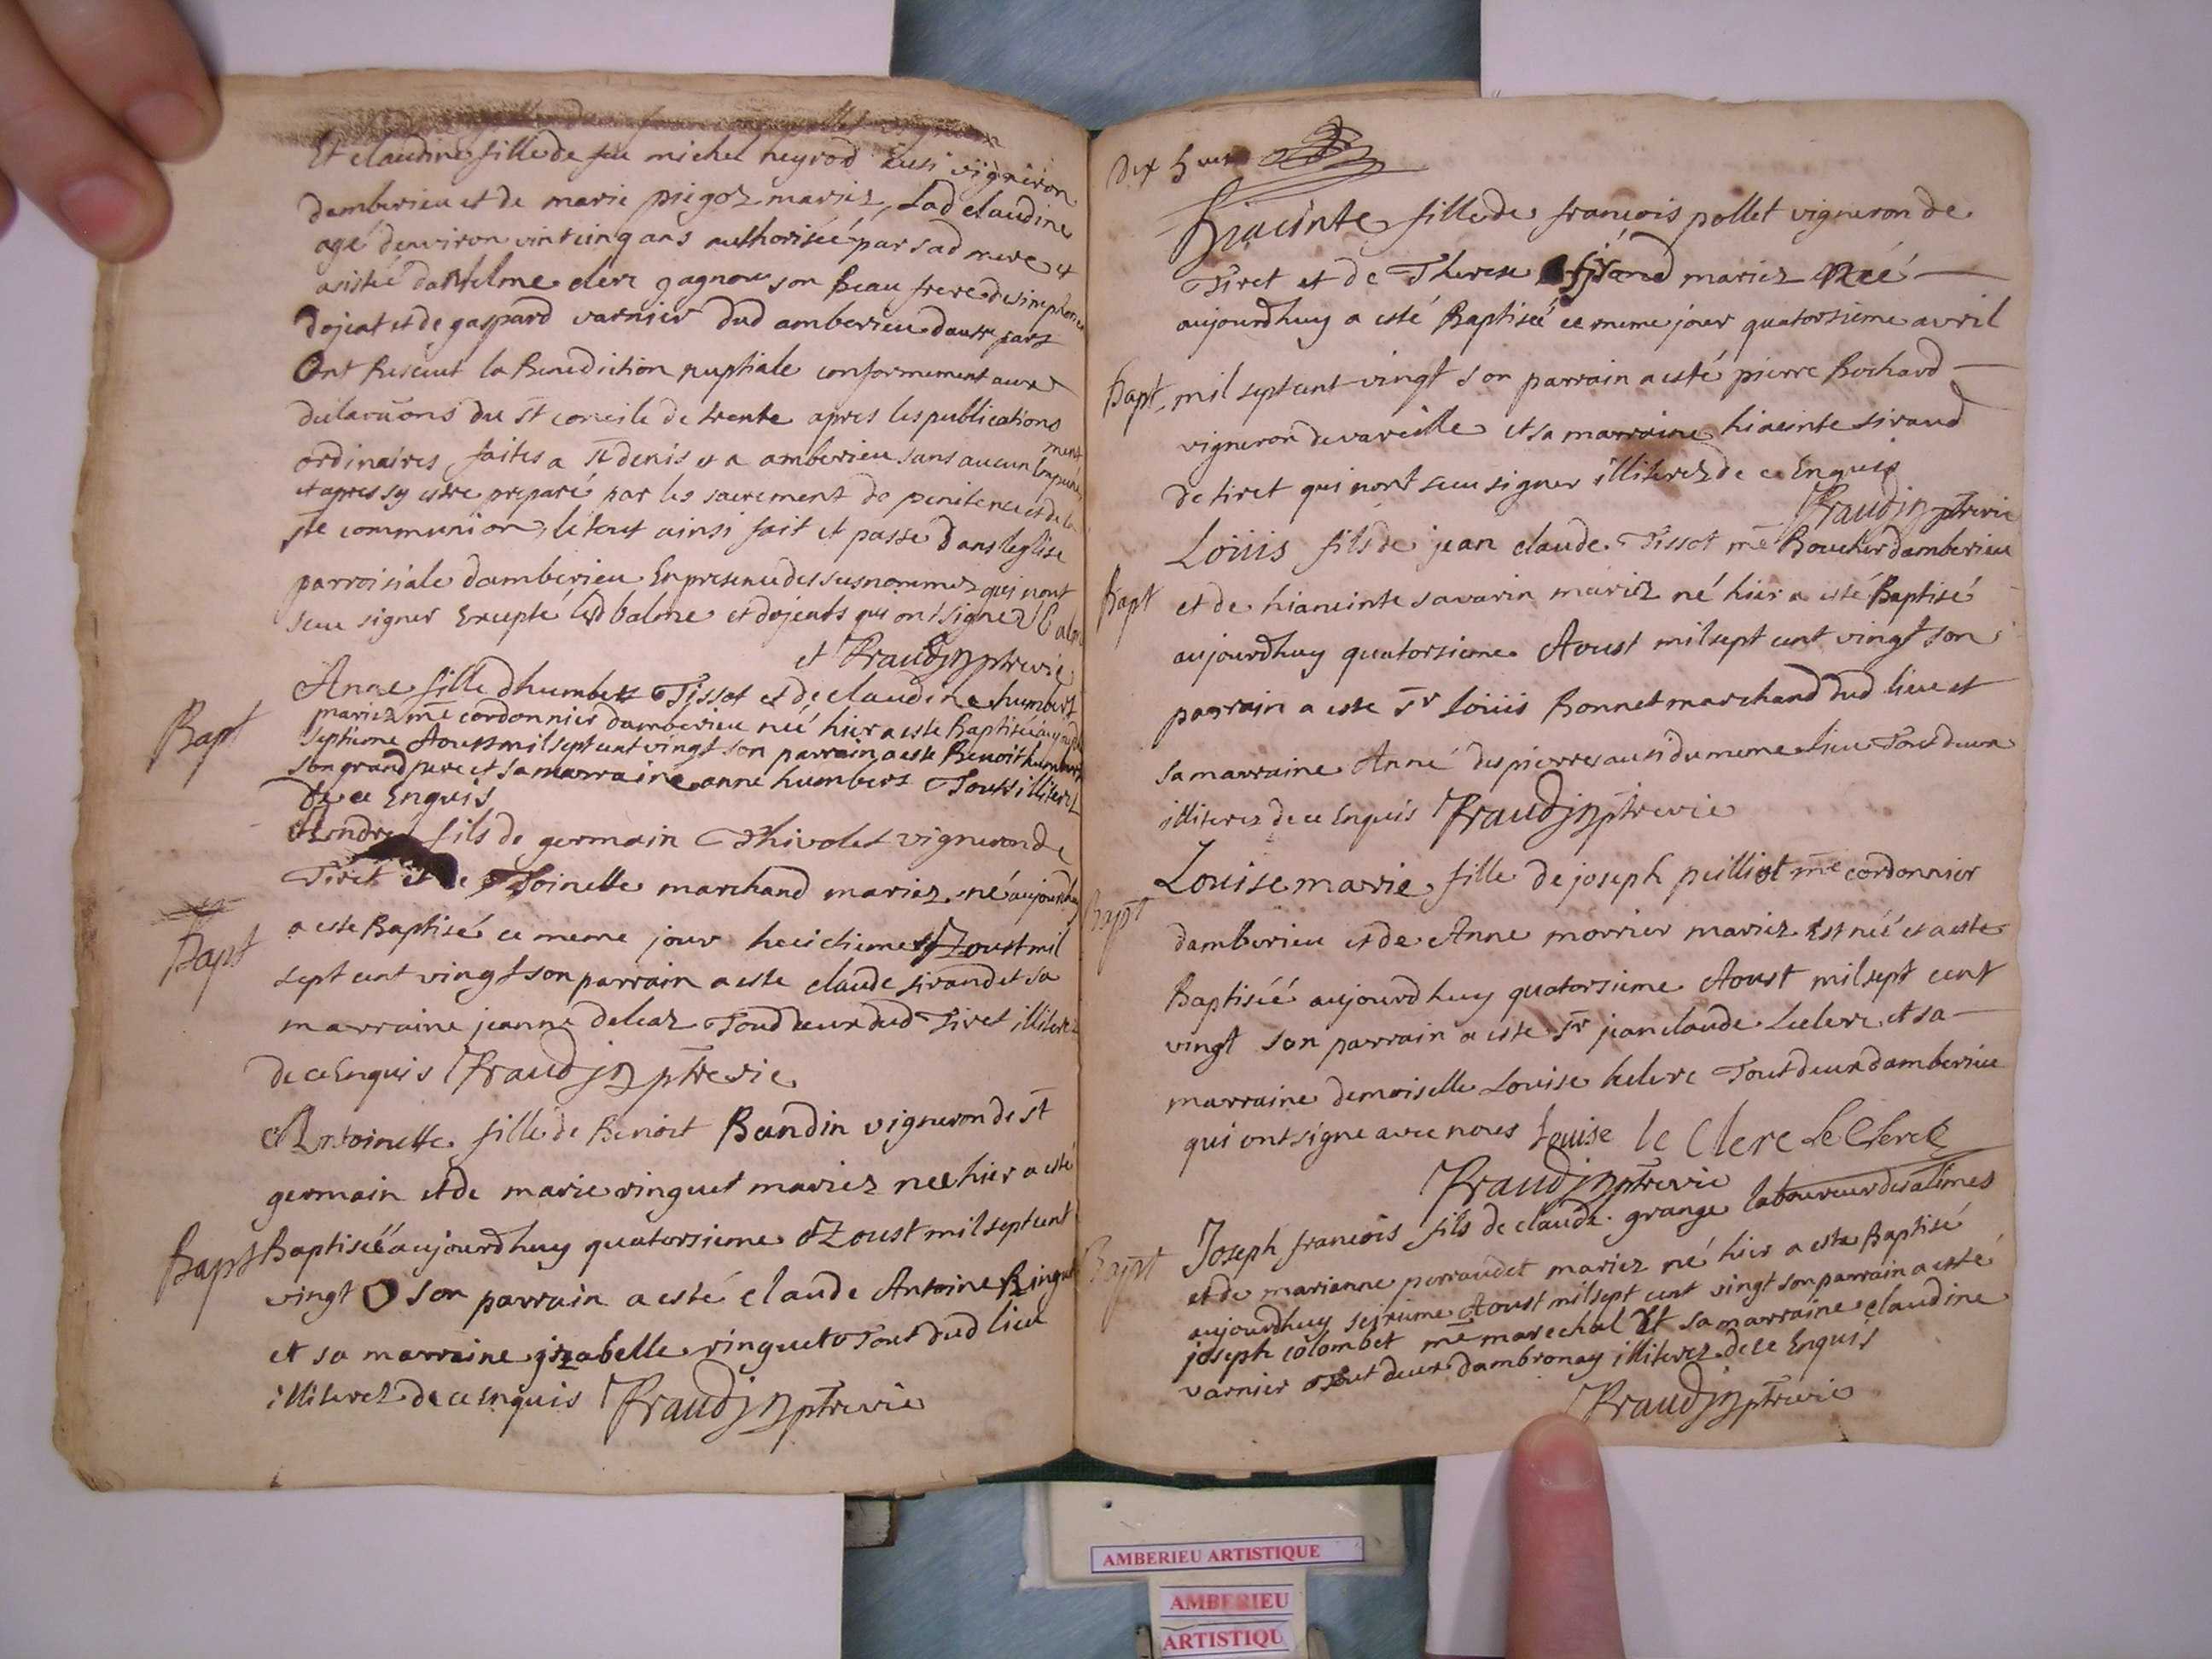 Et claudine fille de feu michel heyrod aussi vigneron
damberieu et de marie pregoz mariez, Lad claudine
agé denviron vint cinq ans authorisée par sad mere et
asistée dantelme clerc gagneur son beau frere de
dojeat et de gaspard varnier dud amberieu dautre part
Ont Receut la Benediction nuptiale conformement aux
declarãons du st concile de trente apres les publications
ordinaires faites a st denis et a amberieu sans aucun Empeche
ment
et apres sy estre preparé par les sacrement de penitence et de la
ste communion, le tout ainsi fait et passé dans leglise
parroisiale damberieu En presence des susnommez qui nont
sceu signer Excepté led balme et dojeats qui ont signez Balme
et Fraudin ptre vic
Anne fille dhumbert Tissot et de claudine humbert
mariez me cordonnier damberieu née hier a este Baptisée aujourdhuy
septieme Aoust mil sept cent vingt son parrain a este Benoit humbert
son grand pere et sa marraine anne humbert Touts illiterez
Bapt
de ce Enquis
Andre fils de germain Thivolet vigneron de
Tiret et de Toinette marchand mariez né aujourdhuy
a este Baptisé ce meme jour huictieme Aoust mil
Bapt
sept cent vingt son parrain a este claude sirand et sa
marraine jeanne deleaz Toud deux dud Tiret illiterez
de ce Enquis Fraudin ptre vic
Antoinette fille de Benoit Bandin vigneron de st
germain et de marie ringuet mariez nee hier a esté
Bapt Baptisée aujourdhuy quatorsieme Aoust mil sept cent
vingt son parrain a esté claude Antoine Ringuet
et sa marraine jzabelle ringuet Tout dud lieu
illiterez de ce Enquis Fraudin ptre vic
Dix huit
Hiacinte fille de francois pollet vigneron de
Tiret et de Therese sirand mariez née
aujourdhuy a esté Baptisée ce meme jour quatorsieme avril
Bapt mil sept cent vingt son parrain a esté pierre Bochard
vigneron de vareille et sa marraine hiacinte sirand
de tiret qui nont sceu signer illiterez de ce Enquis
Fraudin ptre vic
Loüis fils de jean claude Tissot me Boucher damberieu
Bapt et de hiaceinte savarin mariez né hier a esté Baptisé
aujourdhuy quatorsieme Aoust mil sept cent vingt son
parrain a este sr Loüis Bonnet marchand dud lieu et
sa marraine Anne despierres ausi du meme lieu Tout deux
illiterez de ce Enquis Fraudin ptre vic
Louise marie fille de joseph peilliot me cordonnier
Bapt
damberieu et de Anne morrier mariez Est née et a este
Baptisée aujourdhuy quatorsieme Aoust mil sept cent
vingt son parrain a este sr jean claude Leclerc et sa
marraine demoiselle Louise leclerc Tout deux damberieu
qui ont signe avec nous Louise le Clerc LeClerc
Fraudin ptre vic
Joseph francois fils de claude grange laboureur des alimes
Bapt
et de marianne perraudet mariez né hier a este Baptisé
aujourdhuy sejzieme Aoust mil sept cent vingt son parrain a esté
joseph colombet me marechal Et sa marraine claudine
varnier Tout deux dambronay illiterez de ce Enquis
Fraudin ptre vic
AMBERIEU ARTISTIQUE
AMBERIEU
ARTISTIQU